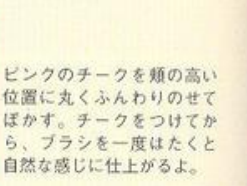 ピンクのチークを頬の高い
位置に丸くふんわりのせて
ぼかす。チークをつけてか
ら、ブラシを一度はたくと
自然な感じに仕上がるよ。